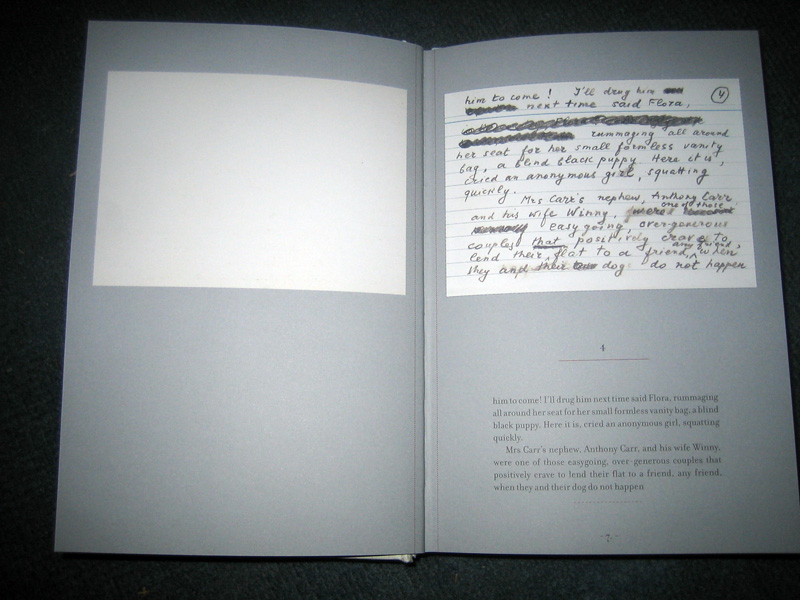 him to come! I'll drug him
next time said Flora,
rummaging all around
her seat for her small formless vanity
bag, a blind black puppy. Here it is,
cried an anonymous girl, squatting
quickly.
Mrs Carr's nephew, Anthony Carr
and his wife Winny, were one of those
easygoing, over-generous
couples that positively crave to
lend their flat to a friend, any friend, when
they and their dog do not happen
4
4
him to come! I'll drug him next time said Flora, rummaging
all around her seat for her small formless vanity bag, a blind
black puppy. Here it is, cried an anonymous girl, squatting
quickly.
Mrs Carr's nephew, Anthony Carr, and his wife Winny,
were one of those easygoing, over-generous couples that
positively crave to lend their flat to a friend, any friend,
when they and their dog do not happen
7